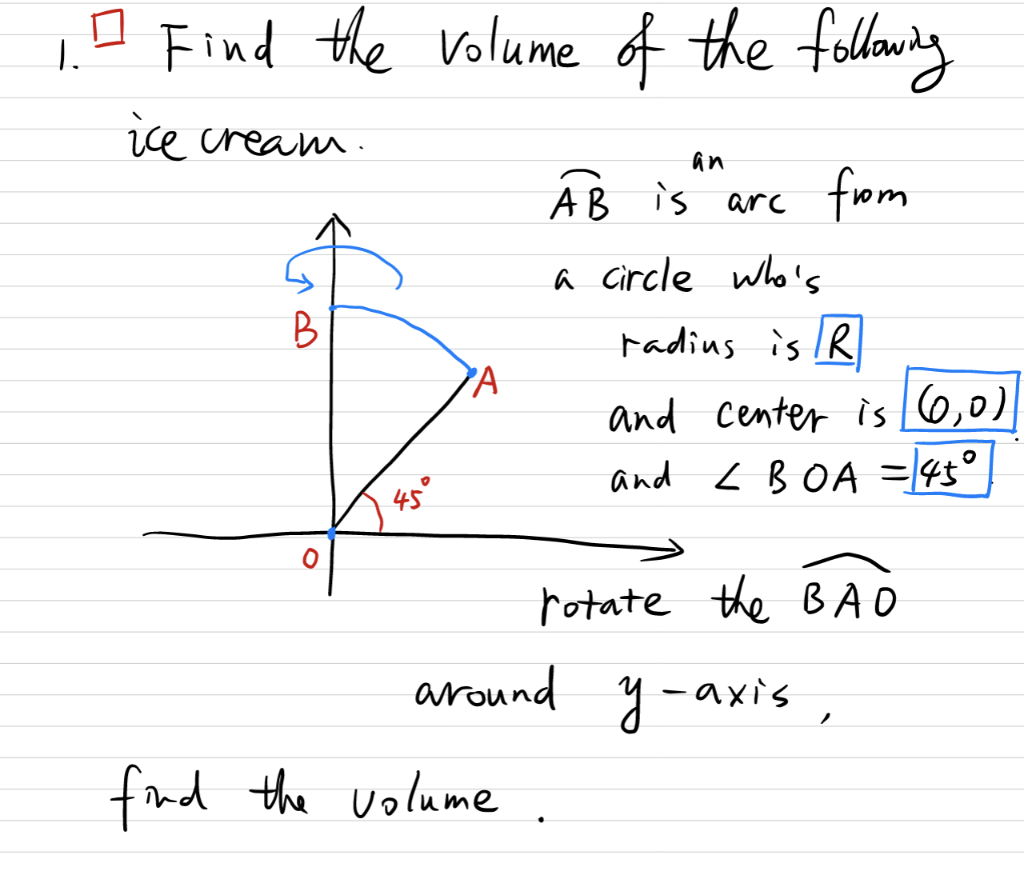 1. Find the volume of the following
ice cream.
an
AB is arc from
a circle who's
radius is R
and center is (0,0).
and ∠BOA = 45°.
B
A
45°
O
rotate the BAO
around y-axis,
find the volume.